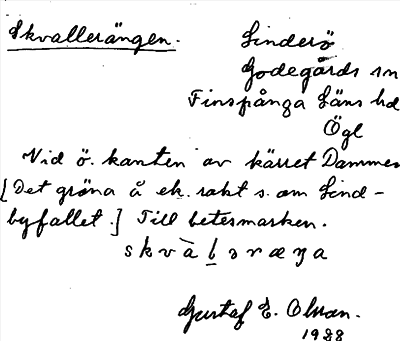 Skvallerängen.
Linderö
Godegårds sn
Finspånga Läns hd
Ögl
Vid ö. kanten av kärret Dammen
[Det gröna å ek. rakt s. om Lind-
byfallet.] Till betesmarken.
skvàlɘræŋa
Gustaf E. Olsson.
1928